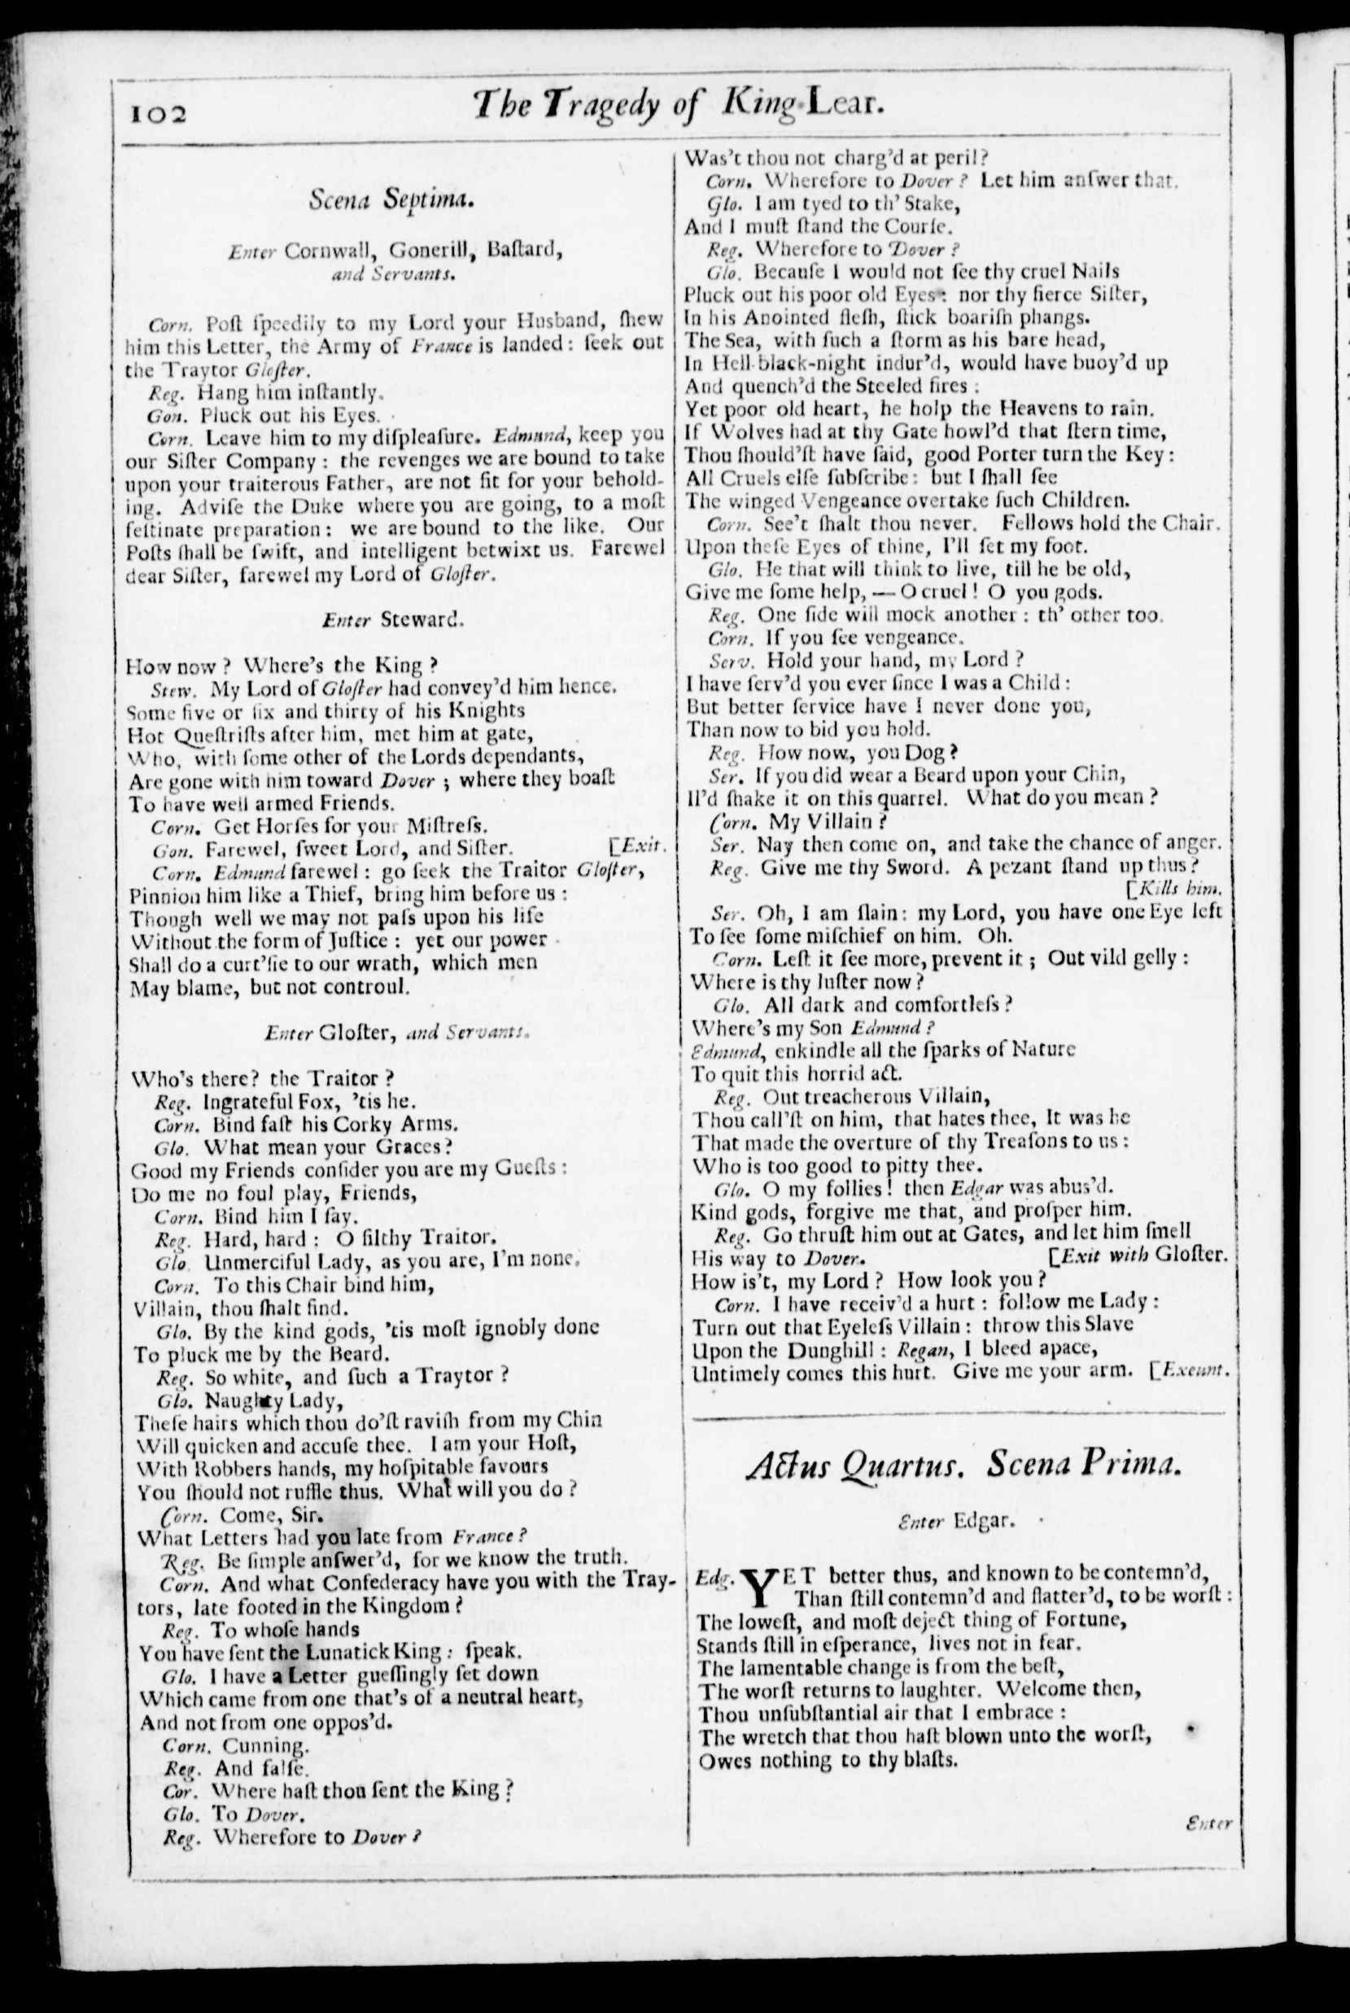 102
The Tragedy of King Lear.
Scena Septima.
Enter Cornwall, Gonerill, Baſtard,
and Servants.
Corn. Poſt ſpeedily to my Lord your Husband, ſhew
him this Letter, the Army of France is landed: ſeek out
the Traytor Gloſter.
Reg. Hang him inſtantly.
Gon. Pluck out his Eyes.
Corn. Leave him to my diſpleaſure. Edmund, keep you
our Siſter Company: the revenges we are bound to take
upon your traiterous Father, are not fit for your behold-
ing. Adviſe the Duke where you are going, to a moſt
feſtinate preparation: we are bound to the like. Our
Poſts ſhall be ſwift, and intelligent betwixt us. Farewel
dear Siſter, farewel my Lord of Gloſter.
Enter Steward.
How now? Where's the King?
Stew. My Lord of Gloſter had convey'd him hence.
Some five or ſix and thirty of his Knights
Hot Queſtriſts after him, met him at gate,
Who, with ſome other of the Lords dependants,
Are gone with him toward Dover; where they boaſt
To have well armed Friends.
Corn. Get Horſes for your Miſtreſs.
Gon. Farewel, ſweet Lord, and Siſter. [Exit.
Corn. Edmund farewel: go ſeek the Traitor Gloſter,
Pinnion him like a Thief, bring him before us:
Though well we may not paſs upon his life
Without the form of Juſtice: yet our power
Shall do a curt'ſie to our wrath, which men
May blame, but not controul.
Enter Gloſter, and Servants.
Who's there? the Traitor?
Reg. Ingrateful Fox, 'tis he.
Corn. Bind faſt his Corky Arms.
Glo. What mean your Graces?
Good my Friends conſider you are my Gueſts:
Do me no foul play, Friends,
Corn. Bind him I ſay.
Reg. Hard, hard: O filthy Traitor.
Glo. Unmerciful Lady, as you are, I'm none.
Corn. To this Chair bind him,
Villain, thou ſhalt find.
Glo. By the kind gods, 'tis moſt ignobly done
To pluck me by the Beard.
Reg. So white, and ſuch a Traytor?
Glo. Naughty Lady,
Theſe hairs which thou do'ſt raviſh from my Chin
Will quicken and accuſe thee. I am your Hoſt,
With Robbers hands, my hoſpitable favours
You ſhould not ruffle thus. What will you do?
Corn. Come, Sir.
What Letters had you late from France?
Reg. Be ſimple anſwer'd, for we know the truth.
Corn. And what Confederacy have you with the Tray-
tors, late footed in the Kingdom?
Reg. To whoſe hands
You have ſent the Lunatick King: ſpeak.
Glo. I have a Letter gueſſingly ſet down
Which came from one that's of a neutral heart,
And not from one oppos'd.
Corn. Cunning.
Reg. And falſe.
Cor. Where haſt thou ſent the King?
Glo. To Dover.
Reg. Wherefore to Dover?
Was't thou not charg'd at peril?
Corn. Wherefore to Dover? Let him anſwer that.
Glo. I am tyed to th' Stake,
And I muſt ſtand the Courſe.
Reg. Wherefore to Dover?
Glo. Becauſe I would not ſee thy cruel Nails
Pluck out his poor old Eyes: nor thy fierce Siſter,
In his Anointed fleſh, ſtick boariſh phangs.
The Sea, with ſuch a ſtorm as his bare head,
In Hell-black-night indur'd, would have buoy'd up
And quench'd the Steeled fires:
Yet poor old heart, he holp the Heavens to rain.
If Wolves had at thy Gate howl'd that ſtern time,
Thou ſhould'ſt have ſaid, good Porter turn the Key:
All Cruels elſe ſubſcribe: but I ſhall ſee
The winged Vengeance overtake ſuch Children.
Corn. See't ſhalt thou never. Fellows hold the Chair.
Upon theſe Eyes of thine, I'll ſet my foot.
Glo. He that will think to live, till he be old,
Give me ſome help, — O cruel! O you gods.
Reg. One ſide will mock another: th' other too.
Corn. If you ſee vengeance.
Serv. Hold your hand, my Lord?
I have ſerv'd you ever ſince I was a Child:
But better ſervice have I never done you,
Than now to bid you hold.
Reg. How now, you Dog?
Ser. If you did wear a Beard upon your Chin,
Il'd ſhake it on this quarrel. What do you mean?
Corn. My Villain?
Ser. Nay then come on, and take the chance of anger.
Reg. Give me thy Sword. A pezant ſtand up thus?
[Kills him.
Ser. Oh, I am ſlain: my Lord, you have one Eye left
To ſee ſome miſchief on him. Oh.
Corn. Leſt it ſee more, prevent it; Out vild gelly:
Where is thy luſter now?
Glo. All dark and comfortleſs?
Where's my Son Edmund?
Edmund, enkindle all the ſparks of Nature
To quit this horrid act.
Reg. Out treacherous Villain,
Thou call'ſt on him, that hates thee, It was he
That made the overture of thy Treaſons to us:
Who is too good to pitty thee.
Glo. O my follies! then Edgar was abus'd.
Kind gods, forgive me that, and proſper him.
Reg. Go thruſt him out at Gates, and let him ſmell
His way to Dover. [Exit with Gloſter.
How is't, my Lord? How look you?
Corn. I have receiv'd a hurt: follow me Lady:
Turn out that Eyeleſs Villain: throw this Slave
Upon the Dunghill: Regan, I bleed apace,
Untimely comes this hurt. Give me your arm. [Exeunt.
Actus Quartus. Scena Prima.
Enter Edgar.
Edg. YET better thus, and known to be contemn'd,
Than ſtill contemn'd and flatter'd, to be worſt:
The loweſt, and moſt deject thing of Fortune,
Stands ſtill in eſperance, lives not in fear.
The lamentable change is from the beſt,
The worſt returns to laughter. Welcome then,
Thou unſubſtantial air that I embrace:
The wretch that thou haſt blown unto the worſt,
Owes nothing to thy blaſts.
Enter